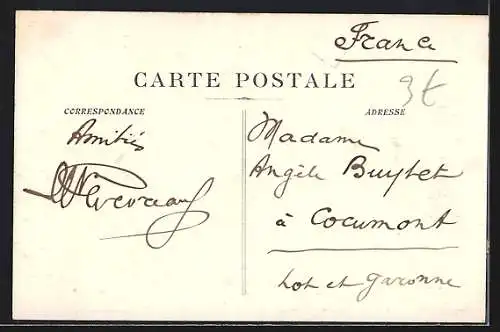 France
CARTE POSTALE
3t
CORRESPONDANCE
Amitiés
ADRESSE
Madame
Angèle
à Cocumont
Lot et Garonne